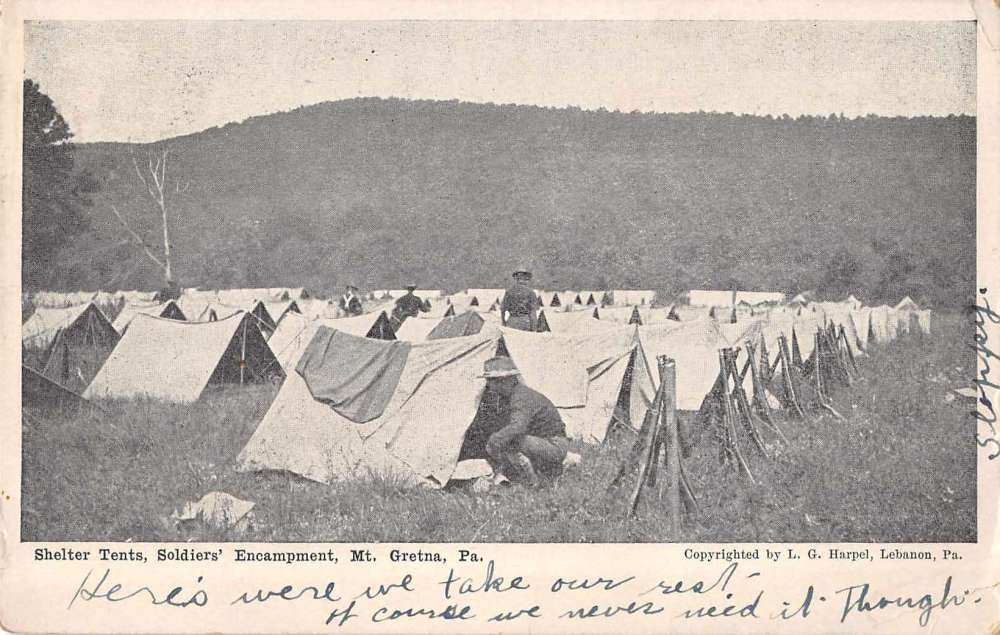 Shelter Tents, Soldiers' Encampment, Mt. Gretna, Pa.
Copyrighted by L. G. Harpel, Lebanon, Pa.
Here's were we take our rest-
of course we never need it though.
Sloppy.